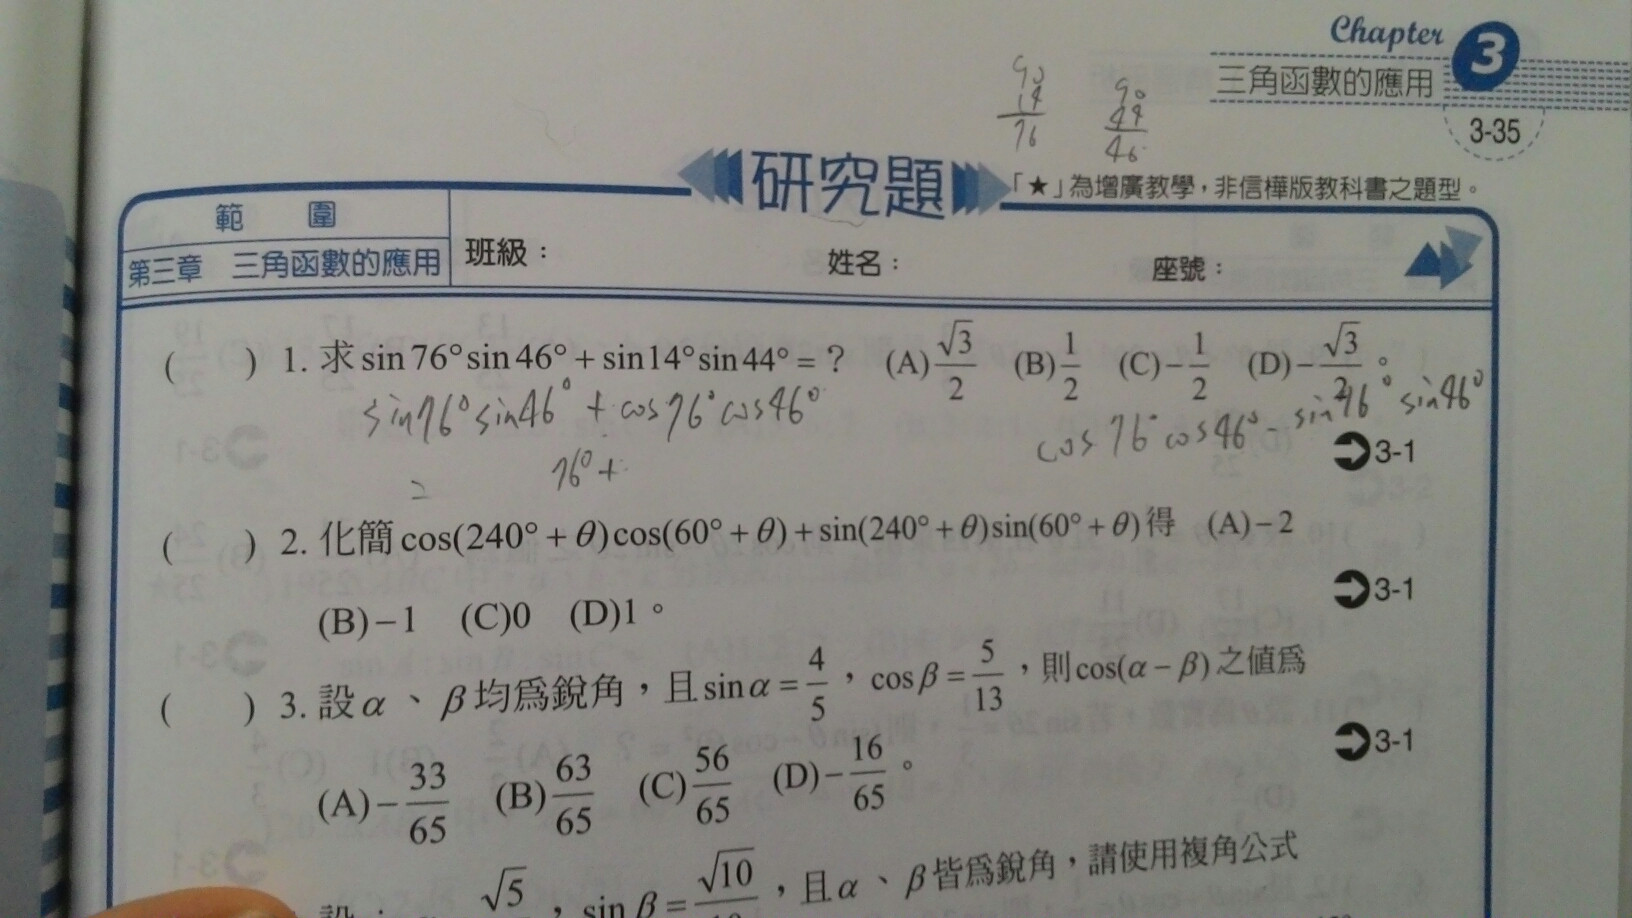 Chapter 3
三角函數的應用
3-35
90
14
76
90
44
46
研究題
「★」為增廣教學，非信樺版教科書之題型。
範 圍
第三章 三角函數的應用
班級： 姓名： 座號：
( ) 1. 求 sin 76° sin 46° + sin 14° sin 44° = ? (A) √3/2 (B) 1/2 (C) −1/2 (D) −√3/2 。
sin76° sin46° + cos76° cos46°
cos 76° cos46° − sin76° sin46°
➲3-1
76° +
=
( ) 2. 化簡 cos(240° + θ)cos(60° + θ) + sin(240° + θ)sin(60° + θ) 得 (A) −2
(B) −1 (C) 0 (D) 1 。
➲3-1
( ) 3. 設 α 、 β 均為銳角，且 sin α = 4/5 ， cos β = 5/13 ，則 cos(α − β) 之值為
➲3-1
(A) −33/65 (B) 63/65 (C) 56/65 (D) −16/65 。
√5 ， sin β = √10 ，且 α 、 β 皆為銳角，請使用複角公式